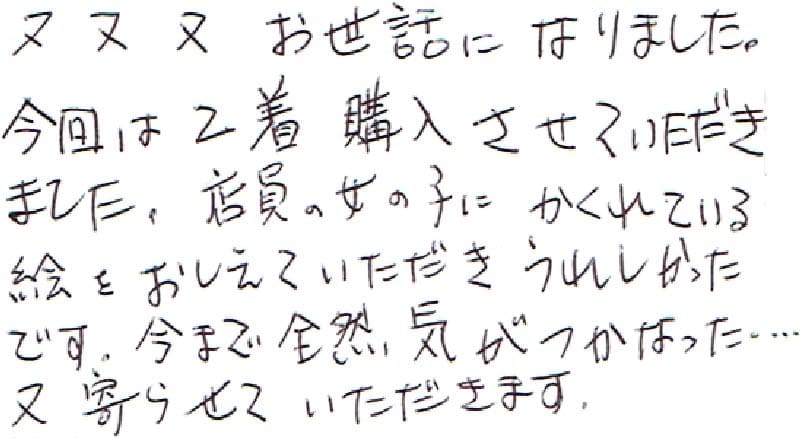 又 又 又 お世話に なりました。
今回は 2着 購入 させていただき
ました。店員の女の子に かくれている
絵を おしえていただき うれしかった
です。今まで 全然、気がつかなった‥‥
又 寄らせて いただきます。